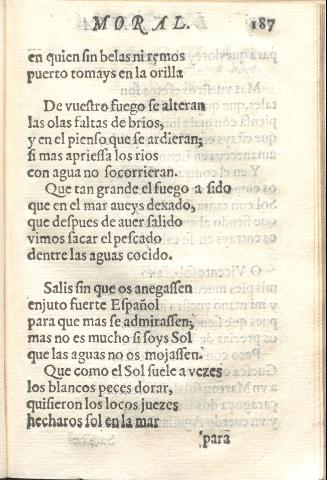 MORAL. 187
en quien sin belas ni remos
puerto tomays en la orilla
De vuestro fuego se alteran
las olas faltas de brios,
y en el pienso que se ardieran;
si mas apriessa los rios
con agua no socorrieran.
Que tan grande el fuego a sido
que en el mar aueys dexado,
que despues de auer salido
vimos sacar el pescado
dentre las aguas cocido.
Salis sin que os anegassen
enjuto fuerte Español
para que mas se admirassen;
mas no es mucho si soys Sol
que las aguas no os mojassen.
Que como el Sol suele a vezes
los blancos peces dorar,
quisieron los locos juezes
hecharos sol en la mar
para